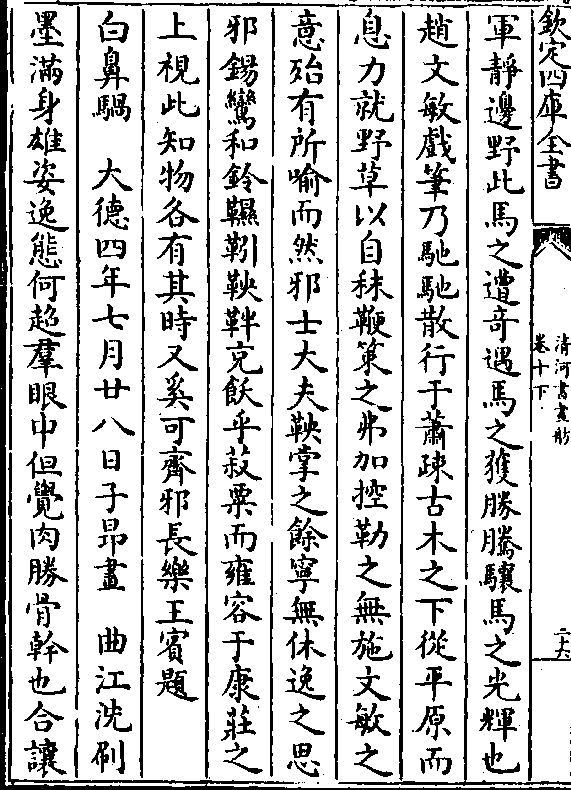 欽定四庫全書
清河書畫舫
卷十下
二十六
軍靜邊野此馬之遭奇遇馬之獲勝騰驤馬之光輝也
趙文敏戲筆乃馳馳散行于蕭疎古木之下從平原而
息力就野草以自秣鞭策之弗加控勒之無施文敏之
意殆有所喻而然邪士大夫鞅掌之餘寧無休逸之思
邪鍚鸞和鈴䪌靷鞅靽克飫乎菽粟而雍容于康莊之
上視此知物各有其時又奚可齊邪長樂王賓題
白鼻騧　大德四年七月廿八日子昂畫　曲江洗刷
墨滿身雄姿逸態何超羣眼中但覺肉勝骨幹也合讓